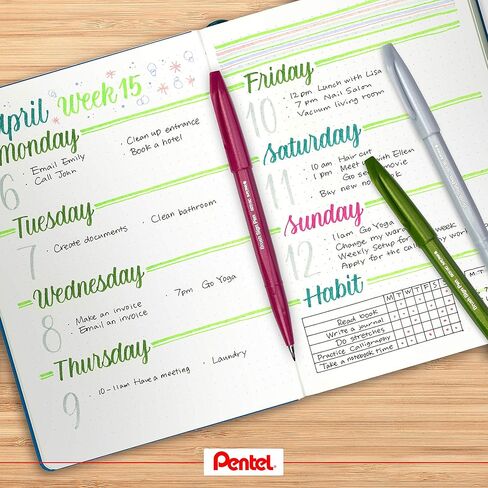 April Week 15
Monday
6
· Email Emily
Call John
· Clean up entrance
Book a hotel
Tuesday
7
· Create documents
· Clean bathroom
Wednesday
8
· Make an invoice
Email an invoice
· 7pm Go Yoga
Thursday
9
· 10-11am Have a meeting
· Laundry
Friday
10
· 12pm Lunch with Lisa
7pm Nail Salon
Vacuum living room
Saturday
11
· 10am Hair cut
1pm Meet with Ellen
Go see movie
Buy new no book
Sunday
12
· 11am Go Yoga
Change my week
Weekly Setup for
Apply for the
Habit
M T W T F S
Read book
Write a journal
Do stretches
Practice Calligraphy
Take a notebook time
Pentel